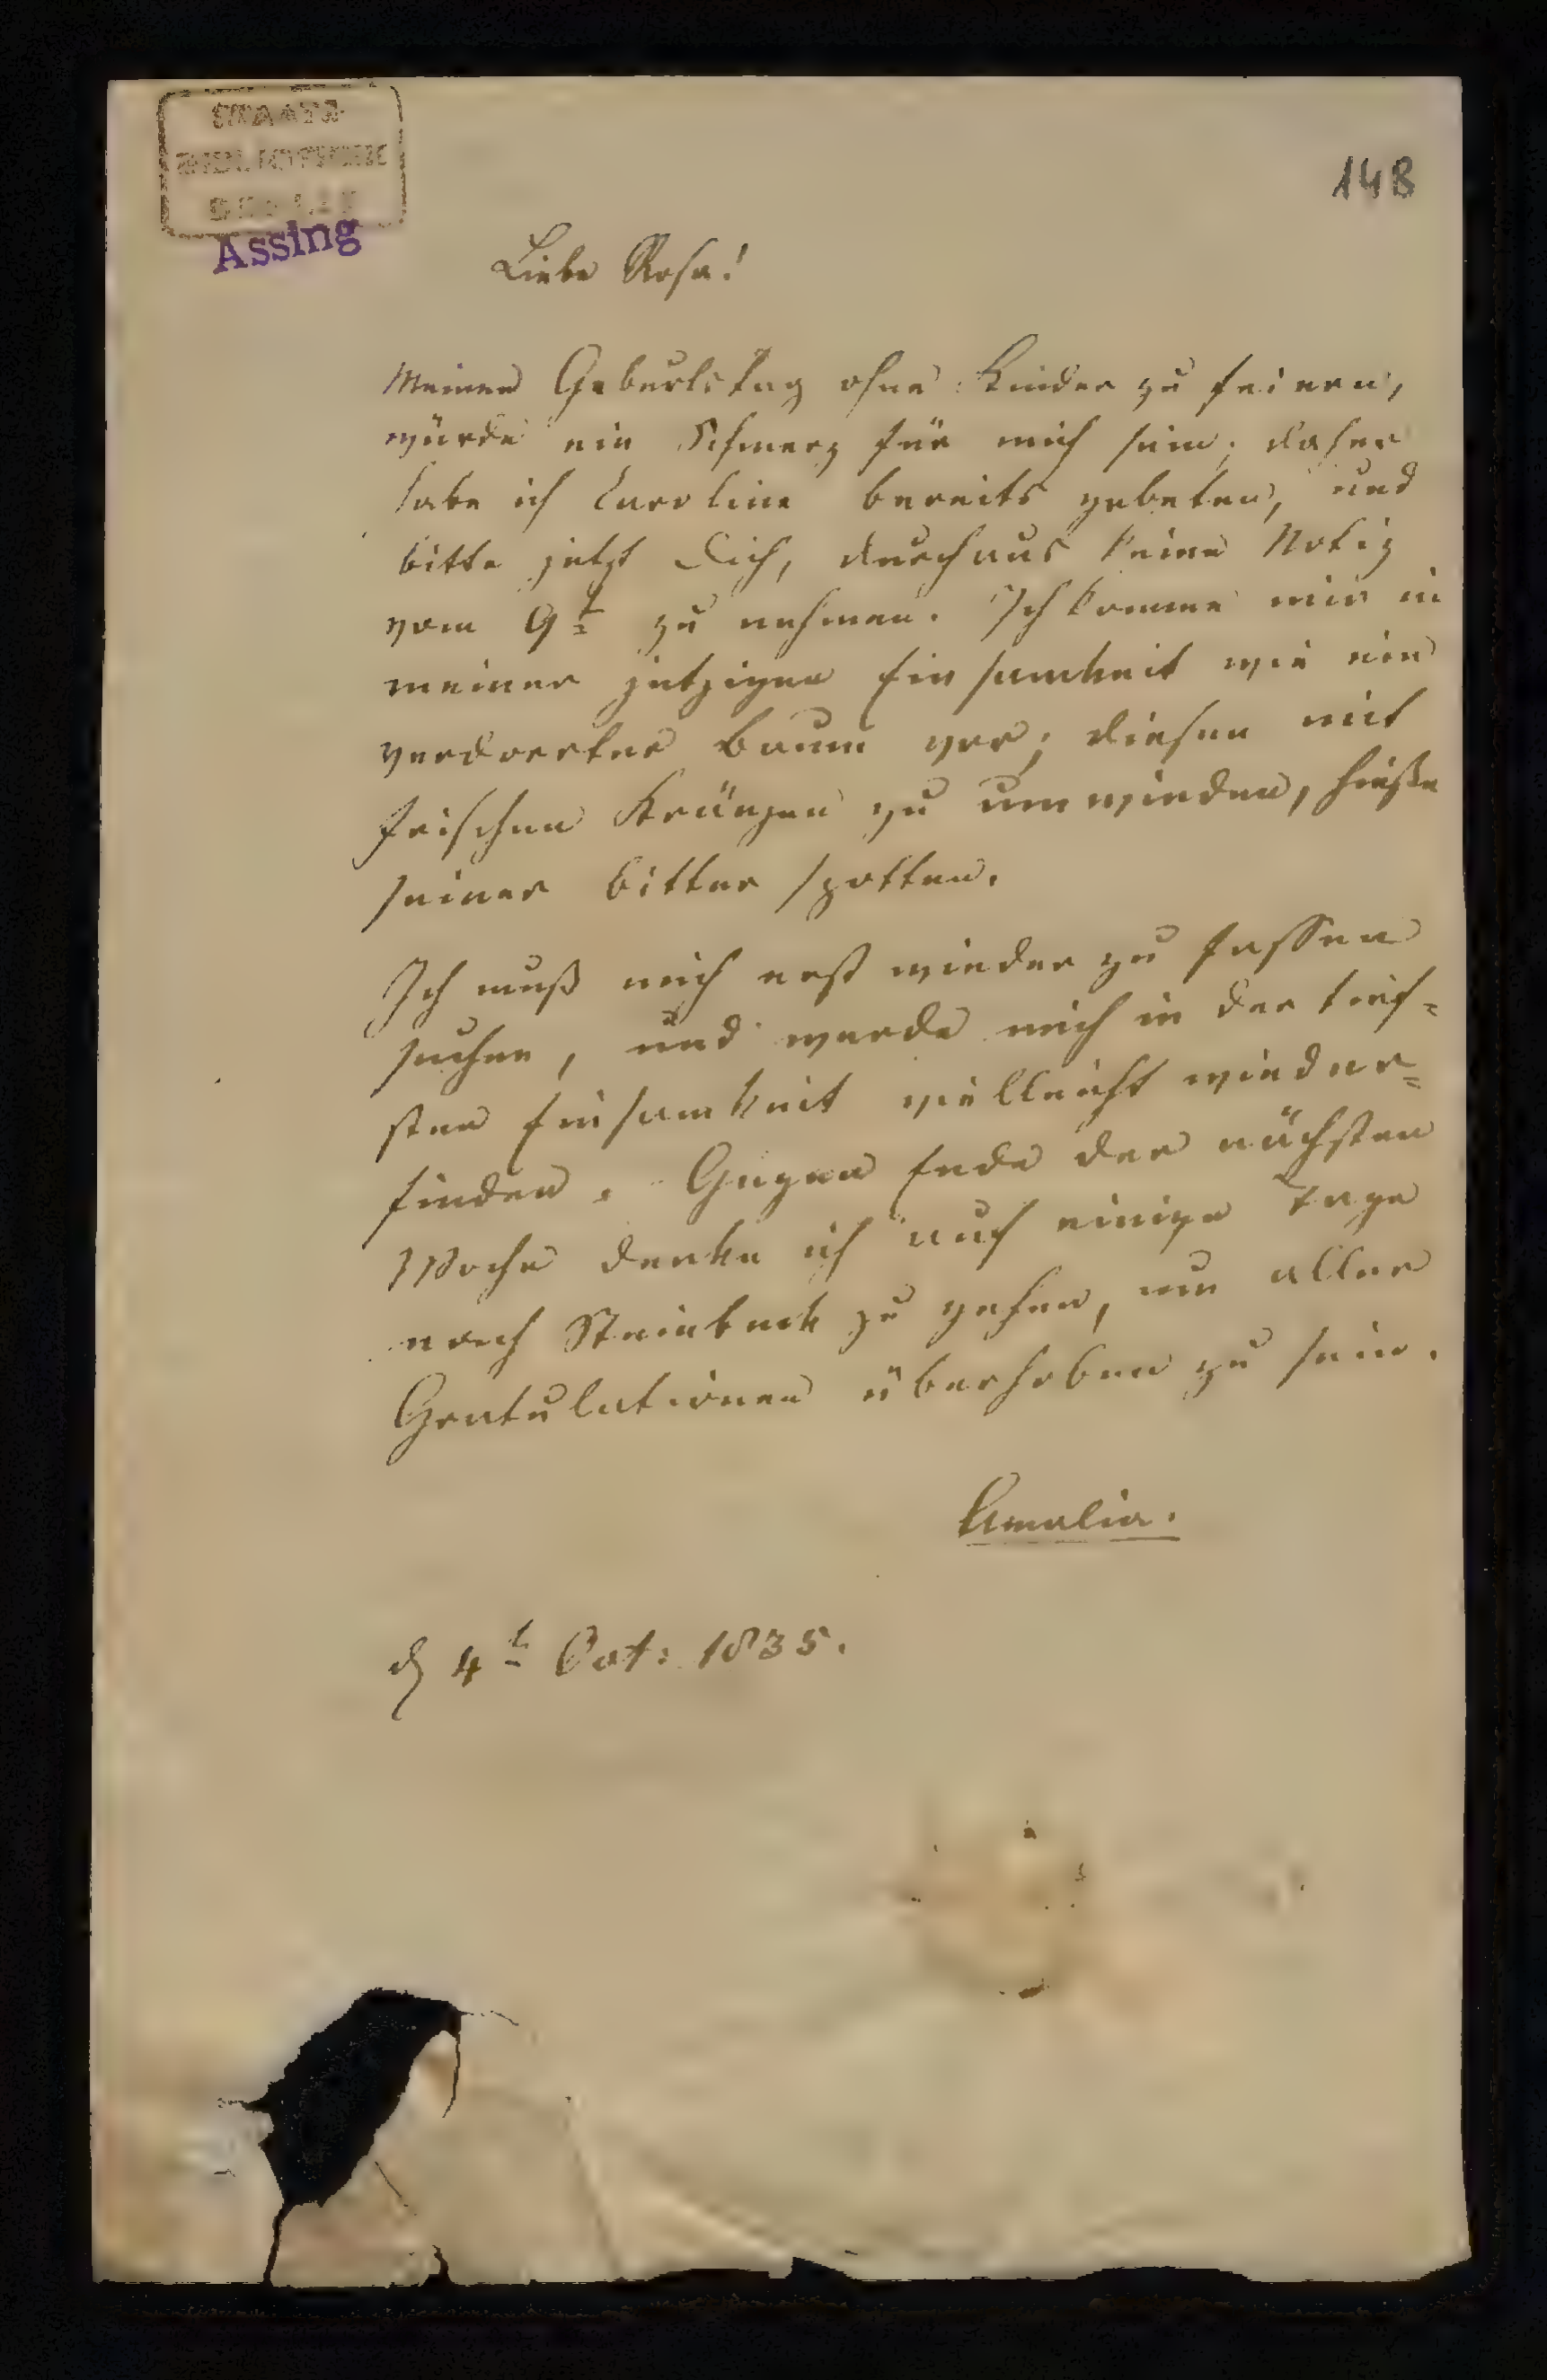 STAATS
BIBLIOTHEK
BERLIN
Assing
148
Liebe Rosa!
Meinen Geburtstag ohne Kinder zu feiern,
würde ein Schmerz für mich sein; daher
habe ich Caroline bereits gebeten, und
bitte jetzt Dich, durchaus keine Notiz
vom 9t zu nehmen. Ich komme mir in
meiner jetzigen Einsamkeit wie ein
verdorrter Baum vor; diesen mit
frischen Kränzen zu umwinden, hieße
seiner bitter spotten.
Ich muß mich erst wieder zu fassen
suchen, und werde mich in der tief=
sten Einsamkeit vielleicht wieder=
finden. Gegen Ende der nächsten
Woche denke ich auf einige Tage
nach Steinbeck zu gehen, um aller
Gratulationen überhoben zu sein.
Amalia.
d 4t Oct: 1835.